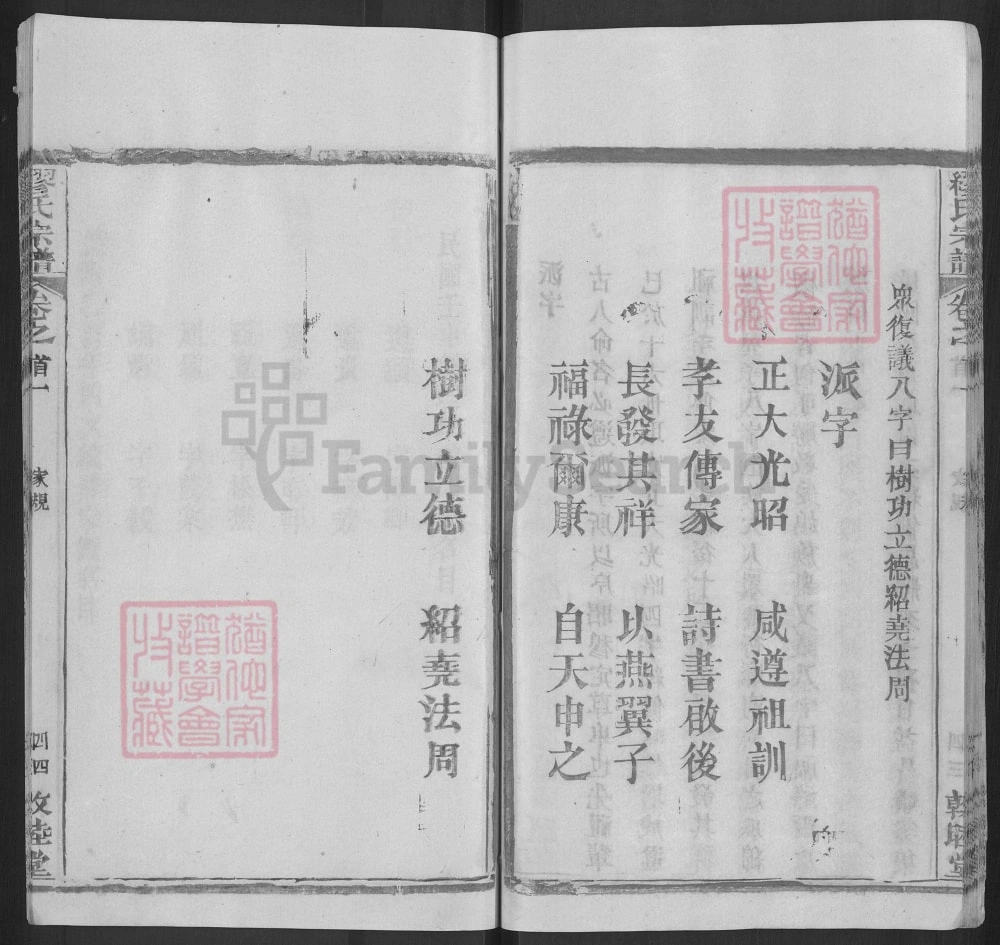 衆復議八字曰樹功立德紹堯法周
派字
正大光昭 咸遵祖訓
孝友傳家 詩書啟後
長發其祥 以燕翼子
福祿爾康 自天申之
樹功立德 紹堯法周
繆氏宗譜 卷之首一 家規 四三
繆氏宗譜 卷之首一 家規 四四 敦睦堂
猶他家譜學會收藏
猶他家譜學會收藏
FamilySearch